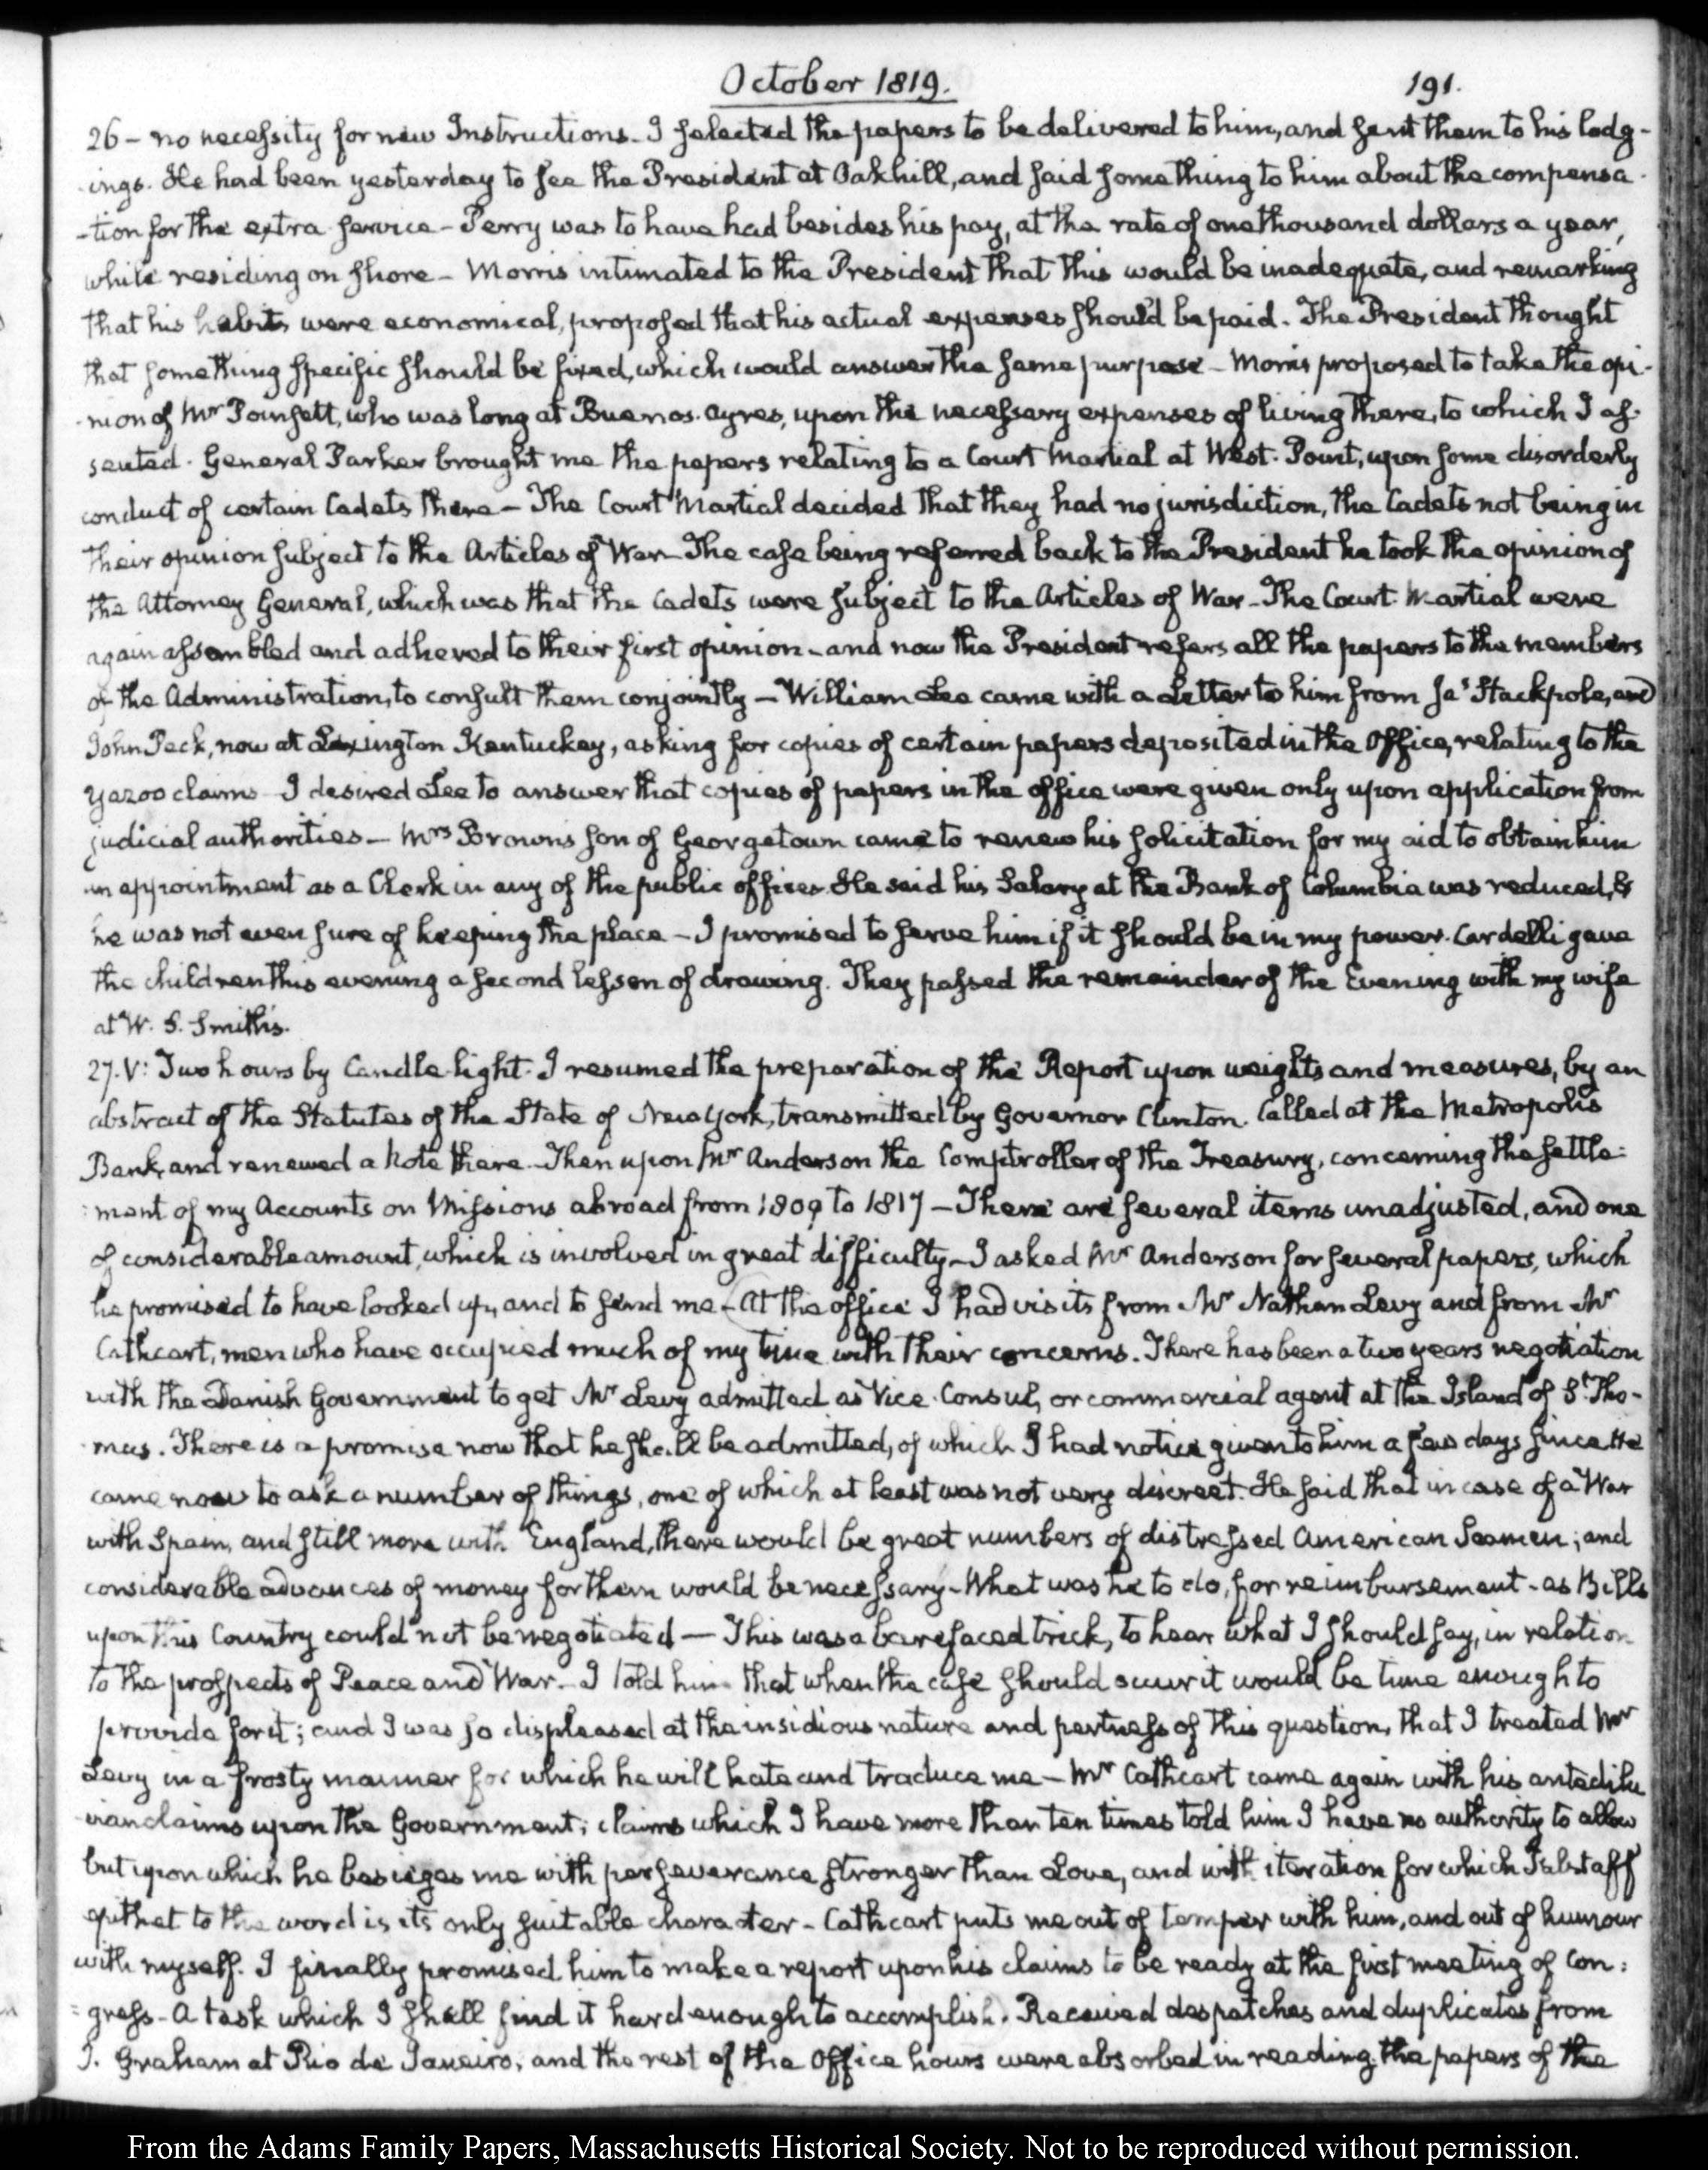 October 1819. 191.
26 - no necessity for new Instructions. I selected the papers to be delivered to him, and sent them to his lodg-
ings. He had been yesterday to see the President at Oakhill, and said something to him about the compensa-
-tion for the extra service - Perry was to have had besides his pay, at the rate of one thousand dollars a year,
while residing on shore - Morris intimated to the President that this would be inadequate, and remarking
that his habits were economical, proposed that his actual expenses should be paid. The President thought
that something specific should be fixed, which would answer the same purpose - Morris proposed to take the opi-
-nion of Mr Poinsett, who was long at Buenos-Ayres, upon the necessary expenses of living there, to which I as-
sented. General Parker brought me the papers relating to a Court Martial at West-Point, upon some disorderly
conduct of certain Cadets there - The Court Martial decided that they had no jurisdiction, the Cadets not being in
their opinion subject to the Articles of War - The case being referred back to the President he took the opinion of
the Attorney General, which was that the Cadets were subject to the Articles of War - The Court-Martial were
again assembled and adhered to their first opinion - and now the President refers all the papers to the members
of the Administration, to consult them conjointly - William Lee came with a Letter to him from Jas Stackpole, and
John Peck, now at Lexington Kentuckey, asking for copies of certain papers deposited in the Office, relating to the
Yazoo claims - I desired Lee to answer that copies of papers in the office were given only upon application from
judicial authorities - Mrs Brown's son of Georgetown came to renew his solicitation for my aid to obtain him
an appointment as a Clerk in any of the public offices. He said his Salary at the Bank of Columbia was reduced, &
he was not even sure of keeping the place - I promised to serve him if it should be in my power. Cardelli gave
the children this evening a second lesson of drawing. They passed the remainder of the Evening with my wife
at W. S. Smith's.
27. V: Two hours by Candle-light. I resumed the preparation of the Report upon weights and measures, by an
abstract of the Statutes of the State of New York, transmitted by Governor Clinton. Called at the Metropolis
Bank, and renewed a Note there. Then upon Mr Anderson the Comptroller of the Treasury, concerning the settle-
ment of my Accounts on Missions abroad from 1809 to 1817 - There are several items unadjusted, and one
of considerable amount, which is involved in great difficulty - I asked Mr Anderson for several papers, which
he promised to have looked up, and to send me - At the office I had visits from Mr Nathan Levy and from Mr
Cathcart, men who have occupied much of my time with their concerns. There has been a two years negotiation
with the Danish Government to get Mr Levy admitted as Vice-Consul, or commercial agent at the Island of St Tho-
-mas. There is a promise now that he shall be admitted, of which I had notice given to him a few days since. He
came now to ask a number of things, one of which at least was not very discreet. He said that in case of a War
with Spain, and still more with England, there would be great numbers of distressed American Seamen; and
considerable advances of money for them would be necessary - What was he to do, for reimbursement - as Bills
upon this Country could not be negotiated - This was a barefaced trick, to hear what I should say, in relation
to the prospects of Peace and War - I told him that when the case should occur it would be time enough to
provide for it; and I was so displeased at the insidious nature and pertness of this question, that I treated Mr
Levy in a frosty manner for which he will hate and traduce me - Mr Cathcart came again with his antedilu
-vian claims upon the Government; claims which I have more than ten times told him I have no authority to allow
but upon which he besieges me with perseverance stronger than Love, and with iteration for which Falstaff
epithet to the word is its only suitable character - Cathcart puts me out of temper with him, and out of humour
with myself. I finally promised him to make a report upon his claims to be ready at the first meeting of Con-
-gress - A task which I shall find it hard enough to accomplish. Received despatches and duplicates from
J. Graham at Rio de Janeiro, and the rest of the Office hours were absorbed in reading the papers of the
From the Adams Family Papers, Massachusetts Historical Society. Not to be reproduced without permission.